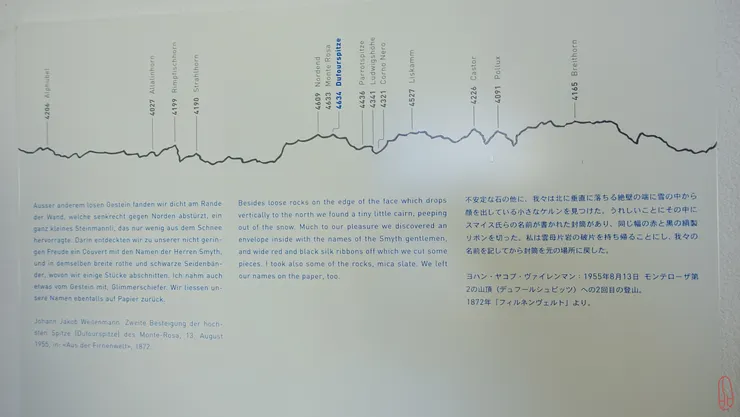 4206 Alphubel
4027 Allalinhorn
4199 Rimpfischhorn
4190 Strahlhorn
4609 Nordend
4633 Monte Rosa
4634 Dufourspitze
4436 Parrotspitze
4341 Ludwigshöhe
4321 Corno Nero
4527 Liskamm
4226 Castor
4091 Pollux
4165 Breithorn
Ausser anderem losen Gestein fanden wir dicht am Rande
der Wand, welche senkrecht gegen Norden abstürzt, ein
ganz kleines Steinmannli, das nur wenig aus dem Schnee
hervorragte. Darin entdeckten wir zu unserer nicht gerin-
gen Freude ein Couvert mit den Namen der Herren Smyth,
und in demselben breite rothe und schwarze Seidenbän-
der, wovon wir einige Stücke abschnitten. Ich nahm auch
etwas vom Gestein mit, Glimmerschiefer. Wir liessen un-
sere Namen ebenfalls auf Papier zurück.
Johann Jakob Weilenmann: Zweite Besteigung der höch-
sten Spitze (Dufourspitze) des Monte-Rosa, 13. August
1955, in «Aus der Firnenwelt», 1872.
Besides loose rocks on the edge of the face which drops
vertically to the north we found a tiny little cairn, peeping
out of the snow. Much to our pleasure we discovered an
envelope inside with the names of the Smyth gentlemen,
and wide red and black silk ribbons off which we cut some
pieces. I took also some of the rocks, mica slate. We left
our names on the paper, too.
不安定な石の他に、我々は北に垂直に落ちる絶壁の端に雪の中から
顔を出している小さなケルンを見つけた。うれしいことにその中に
スマイス氏らの名前が書かれた封筒があり、同じ幅の赤と黒の絹製
リボンを切った。私は雲母片岩の破片を持ち帰ることにし、我々の
名前を記してから封筒を元の場所に戻した。
ヨハン・ヤコブ・ヴァイレンマン：1955年8月13日 モンテローザ第
2の山頂（デュフールシュピッツ）への2回目の登山。
1872年「フィルネンヴェルト」より。